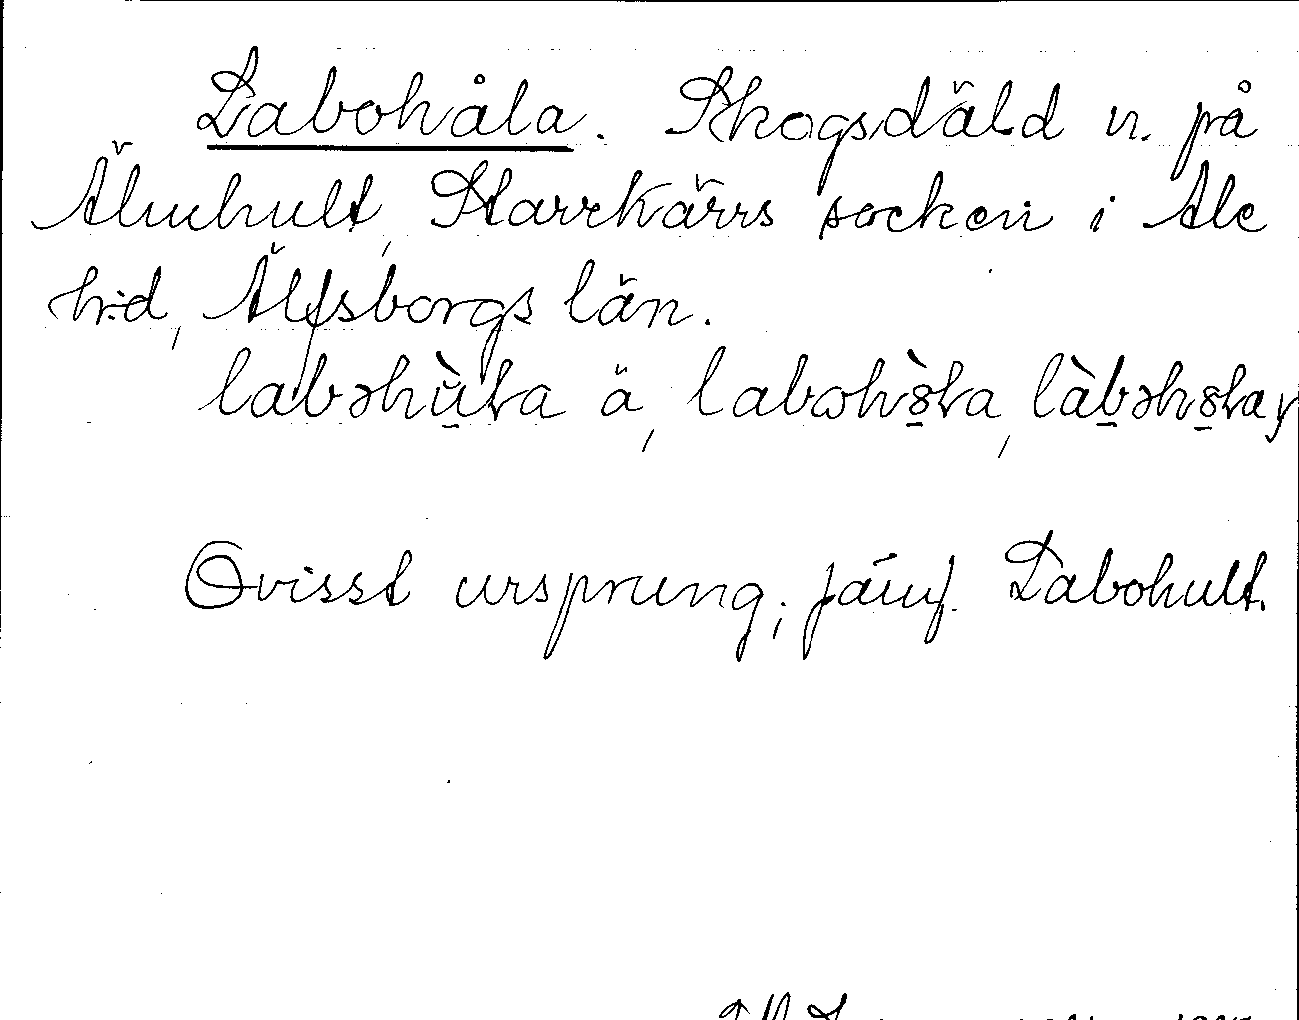 Labohåla. Skogsdäld n. på
Älmhult, Starrkärrs socken i Ale
h:d, Älfsborgs län.
labəhùla ä, labohòla, làbəhola,
Ovisst ursprung; jämf. Labohult.